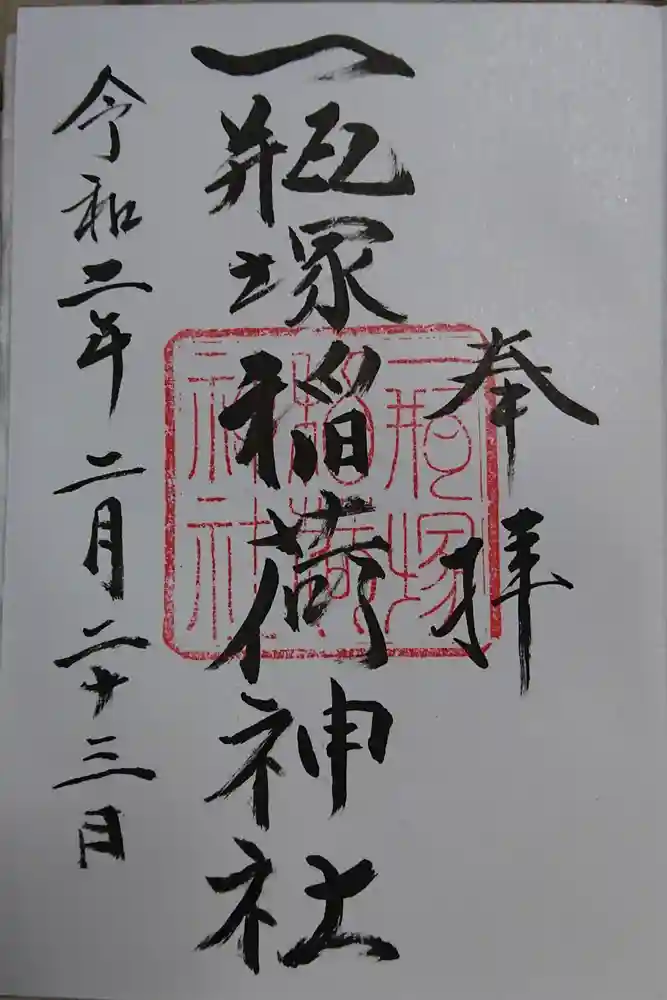 奉拝
一瓶塚稲荷神社
一瓶塚
稲荷
神社
令和二年二月二十三日